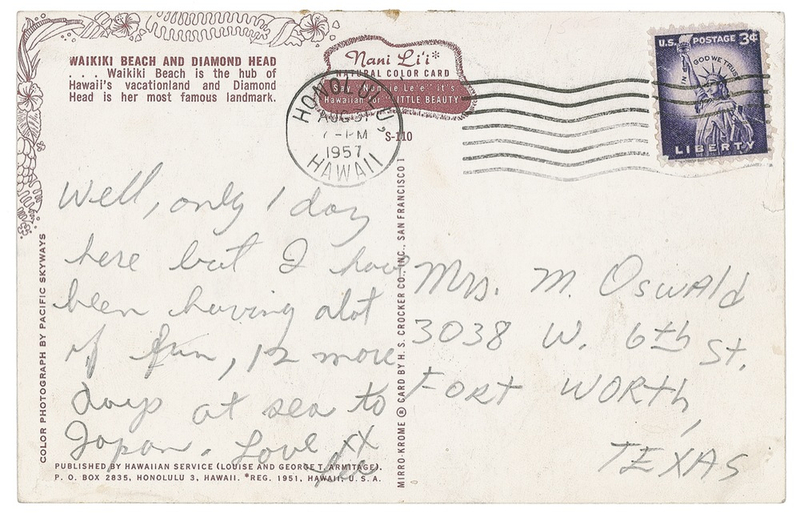 WAIKIKI BEACH AND DIAMOND HEAD
. . . Waikiki Beach is the hub of
Hawaii's vacationland and Diamond
Head is her most famous landmark.
Nani Li'i*
NATURAL COLOR CARD
Say "Nonnie Le'e" it's
Hawaiian for "LITTLE BEAUTY"
S-110
HONOLULU,
AUG 31
7-PM
1957
HAWAII
U.S. POSTAGE 3¢
IN GOD WE TRUST
LIBERTY
Well, only 1 day
here but I have
been having alot
of fun, 12 more
days at sea to
Japan. Love XX
Lee
Mrs. M. Oswald
3038 W. 6th St.
Fort Worth,
Texas
COLOR PHOTOGRAPH BY PACIFIC SKYWAYS
MIRRO-KROME ® CARD BY H. S. CROCKER CO., INC., SAN FRANCISCO 1
PUBLISHED BY HAWAIIAN SERVICE (LOUISE AND GEORGE T. ARMITAGE).
P. O. BOX 2835, HONOLULU 3, HAWAII. *REG. 1951, HAWAII, U. S. A.